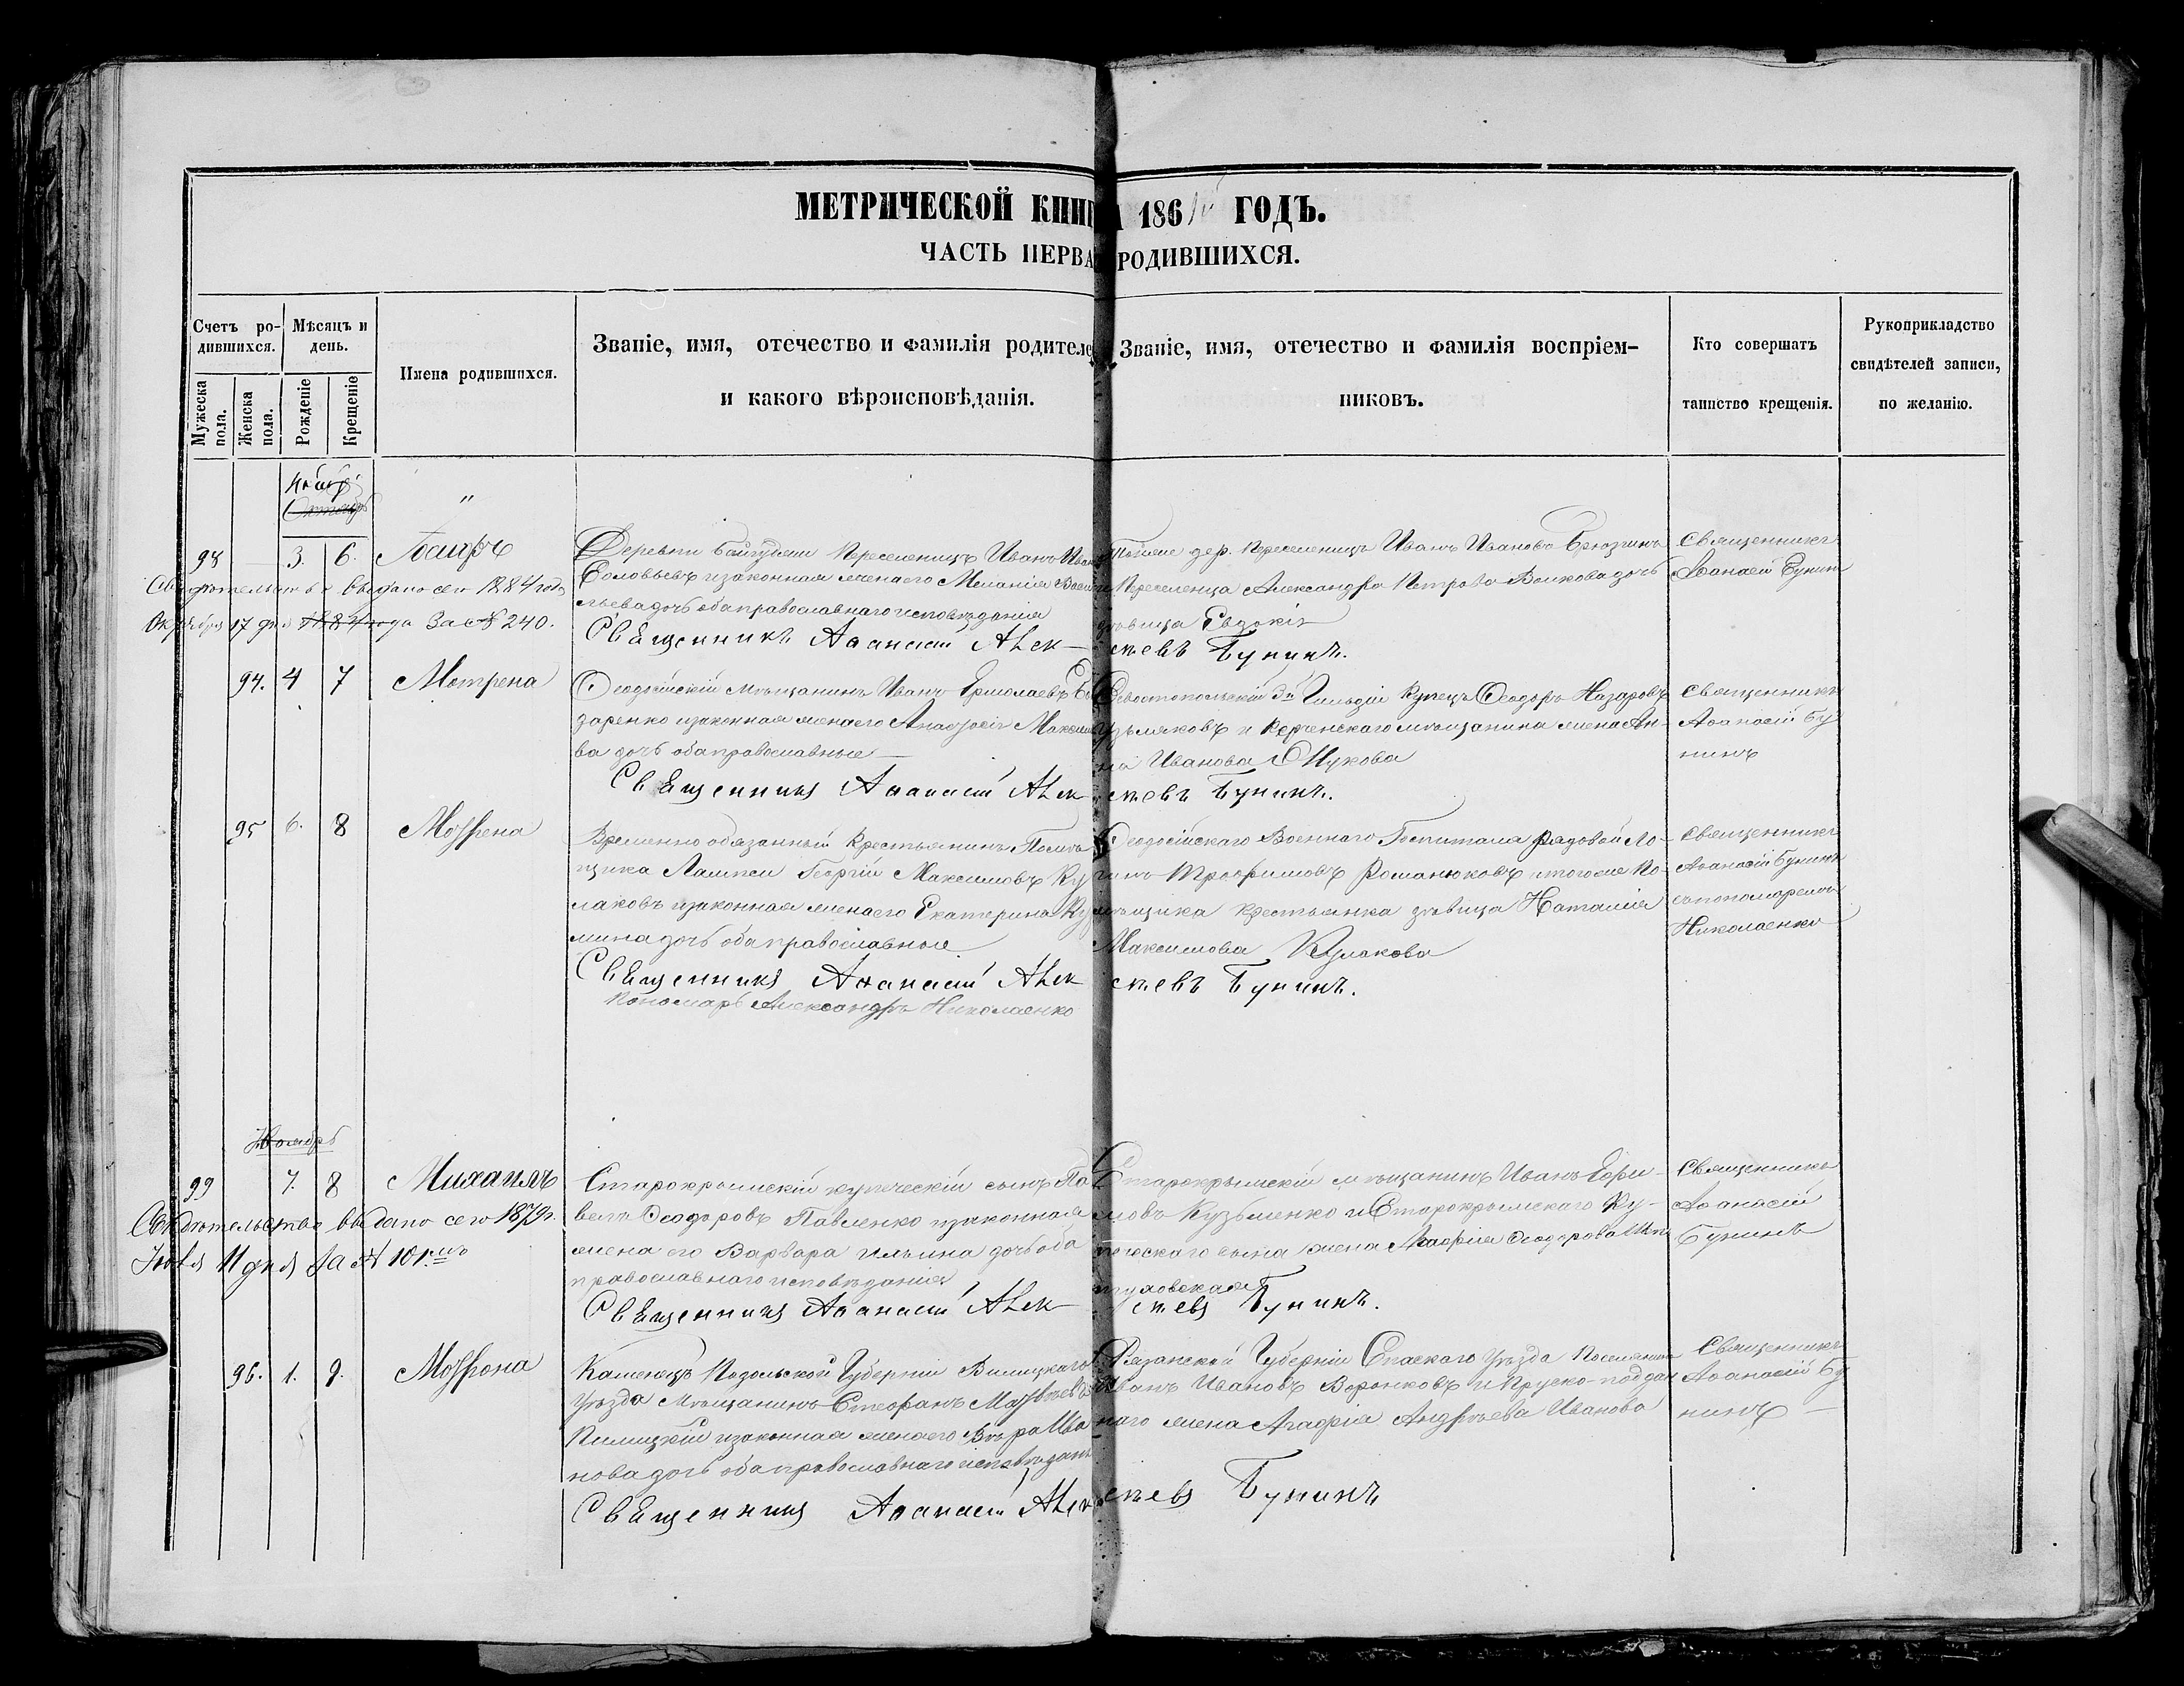 МЕТРИЧЕСКОЙ КНИГ 186 ГОДЪ.
ЧАСТЬ ПЕРВА РОДИВШИХСЯ.
Счетъ ро-
дившихся.
Мѣсяцъ и
день.
Мужеска пола.
Женска пола.
Рожденіе
Крещеніе
Имена родившихся.
Званіе, имя, отечество и фамилія родителе
и какого вѣроисповѣданія.
Званіе, имя, отечество и фамилія воспріем-
никовъ.
Кто совершатъ
таинство крещенія.
Рукоприкладство
свидѣтелей записи,
по желанію.
Октябрь
98 3. 6.
Деревни Переселенецъ Иванъ Иван
Соловьевъ изаконная женаего Меланія Васи
льевадочь обаправославнаго исповѣданія
Тойже дер. Переселенецъ Иванъ Ивановъ
и Переселенца Александра Петрова Волкова дочь
дѣвица Евдокія
Священникъ
Аѳанасій Бунинъ
Свидѣтельство выдано сего 1884 года
Октября 17 дня 1884 года За № 240.
Священникъ Аѳанасій Алек-
сѣевъ Бунинъ.
94. 4 7 Мотрена
Ѳеодосійскій мѣщанинъ Иванъ Ермолаевъ
заренко изаконная женаего Анастасія Максимо
ва дочь обаправославные
Севастопольскій 3й Гильдіи Купецъ Ѳеодоръ Назаровъ
и Керченскаго мѣщанина жена Ан-
на Иванова
Священникъ
Аѳанасій Бу
нинъ
Священникъ Аѳанасій Алек-
сѣевъ Бунинъ.
95 6. 8 Мотрена
Временно обязанный Крестьянинъ Помѣ
щика Лампси Георгій Максимовъ Ку
лаковъ изаконная женаего Екатерина Куз
мина дочь оба православные
Ѳеодосійскаго Военнаго Госпиталя рядовой Ло-
гинъ Трофимовъ Романюковъ итогоже По-
мѣщика крестьянка дѣвица Наталія
Максимова Кулакова
Священникъ
Аѳанасій Бунинъ
съ пономаремъ
Николаенко
Священникъ Аѳанасій Алек
сѣевъ Бунинъ.
Пономарь Александръ Николаенко
Ноябрь
99 7. 8 Михаилъ
Старокрымскій купеческій сынъ Па
велъ Ѳеодоровъ Павленко изаконная
жена его Варвара Ильина дочь оба
православнаго исповѣданія
Старокрымскій мѣщанинъ Иванъ Ефи-
мовъ Кузьменко и Старокрымскаго Ку-
печескаго сына жена Агафія Ѳеодорова
Священникъ
Аѳанасій
Бунинъ
Свидѣтельство выдано сего 1879г.
Іюля 11 дня За № 101.мъ
Священникъ Аѳанасій Алек-
сѣевъ Бунинъ.
96. 1. 9. Мотрона
Каменецъ Подольской Губерніи
Уѣзда мѣщанинъ Стефанъ Матвѣевъ
изаконная женаего Вѣра Ива
нова дочь оба православнаго исповѣдан
Рязанской Губерніи Спаскаго Уѣзда Поселянинъ
Иванъ Ивановъ Воронковъ и Пруско-поддан
наго жена Агафія Андрѣева Иванова
Священникъ
Аѳанасій Бу
нинъ
Священникъ Аѳанасій Алек
сѣевъ Бунинъ